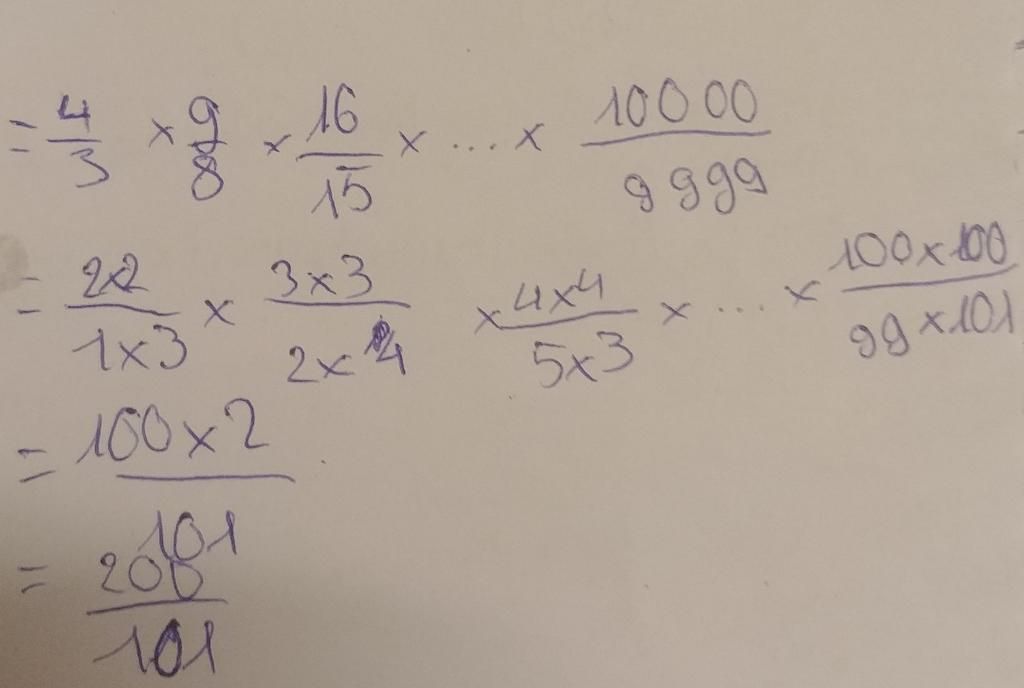 = 4/3 × 9/8 × 16/15 × ... × 10000/9999
= 2×2/1×3 × 3×3/2×4 × 4×4/5×3 × ... × 100×100/99×101
= 100×2/101
= 200/101